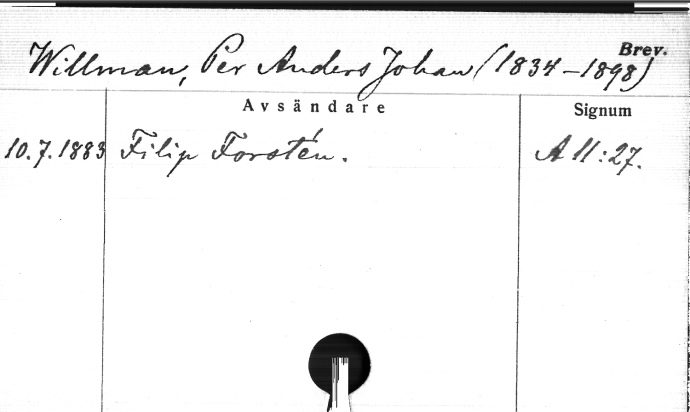 Brev.
Willman, Per Anders Johan (1834-1898)
Avsändare Signum
10.7.1883 Filip Forstén. A II:27.